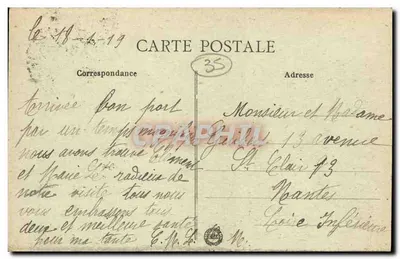 le 18-1-19
CARTE POSTALE
35
Correspondance
Adresse
Arrivée bon port
par un temps
nous avons trouvé Clément
et radieux de
notre visite tous nous
vous embrassons tous
deux et meilleure santé
pour ma tante
Monsieur et Madame
13 avenue
St Clair 13
Nantes
Loire Inférieure